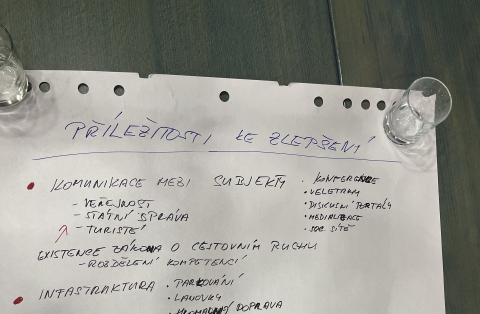 PŘÍLEŽITOSTI KE ZLEPŠENÍ
• KOMUNIKACE MEZI SUBJEKTY
- VEŘEJNOST
- STÁTNÍ SPRÁVA
- TURISTÉ
• KONFERENCE
• VELETRHY
• DISKUSNÍ PORTÁLY
• MEDIALIZACE
• SOC SÍTĚ
EXISTENCE ZÁKONA O CESTOVNÍM RUCHU
- ROZDĚLENÍ KOMPETENCÍ
• INFASTRAKTURA
• PARKOVÁNÍ
• LANOVKY
DOPRAVA